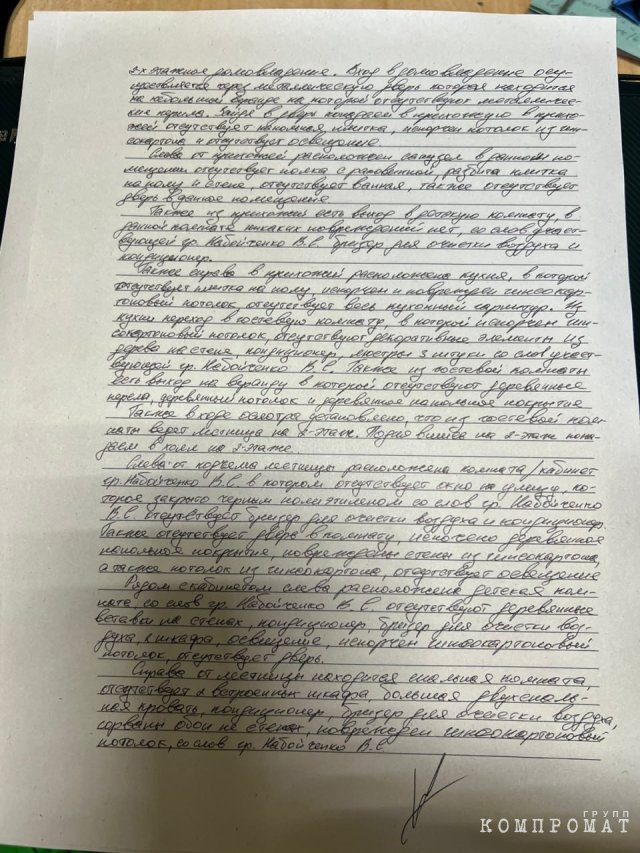 2-х этажное домовладение. Вход в домовладение осу-
ществляется через металлическую дверь которая находится
на небольшой веранде на которой отсутствуют металличес-
кие перила. Зайдя в дверь попадаем в прихожую в прихо-
жей отсутствует напольная плитка, испорчен потолок из гип-
сокартона и отсутствует освещение.
Слева от прихожей расположен санузел в данном по-
мещении отсутствует полка с раковиной, разбита плитка
на полу и стене, отсутствует ванная, также отсутствует
дверь в данное помещение
Также из прихожей есть выход в детскую комнату, в
данной комнате никаких повреждений нет, со слов участ-
вующей гр. Набойченко В.С. бризер для очистки воздуха и
кондиционер.
Также справа в прихожей расположена кухня, в которой
отсутствует плитка на полу, испорчен и поврежден гипсокар-
тоновый потолок, отсутствует весь кухонный гарнитур. Из
кухни переход в гостевую комнату, в которой испорчен гип-
сокартоновый потолок, отсутствуют декоративные элементы из
дерева на стене, кондиционер, люстры 3 штуки со слов участ-
вующей гр. Набойченко В.С. Также из гостевой комнаты
есть выход на веранду в которой отсутствуют деревянные
перела, деревянный потолок и деревянное напольное покрытие
Также в ходе осмотра установлено, что из гостевой ком-
наты ведет лестница на 2-этаж. Поднявшись на 2-этаж попа-
даем в холл на 2-этаже.
Слева от подъема лестницы расположена комната/кабинет
гр. Набойченко В.С в котором отсутствует окно на улицу, ко-
торое закрыто черным полиэтиленом со слов гр. Набойченко
В.С. отсутствует бризер для очистки воздуха и кондиционер.
Также отсутствует дверь в комнату, испорчено деревянное
напольное покрытие, повреждены стены из гипсокартона,
а также потолок из гипсокартона, отсутствует освещение
Рядом с кабинетом слева расположена детская ком-
ната, со слов гр. Набойченко В.С отсутствуют деревянные
вставки на стенах, кондиционер, бризер для очистки воз-
духа, шкафа, освещение, испорчен гипсокартоновый
потолок, отсутствует дверь.
Справа от лестницы находится спальная комната,
отсутствует 2 встроенных шкафа, большая двухспаль-
ная кровать, кондиционер, бризер для очистки воздуха,
сорваны обои на стенах, поврежден гипсокартоновый
потолок, со слов гр. Набойченко В.С
ГРУПП
КОМПРОМАТ